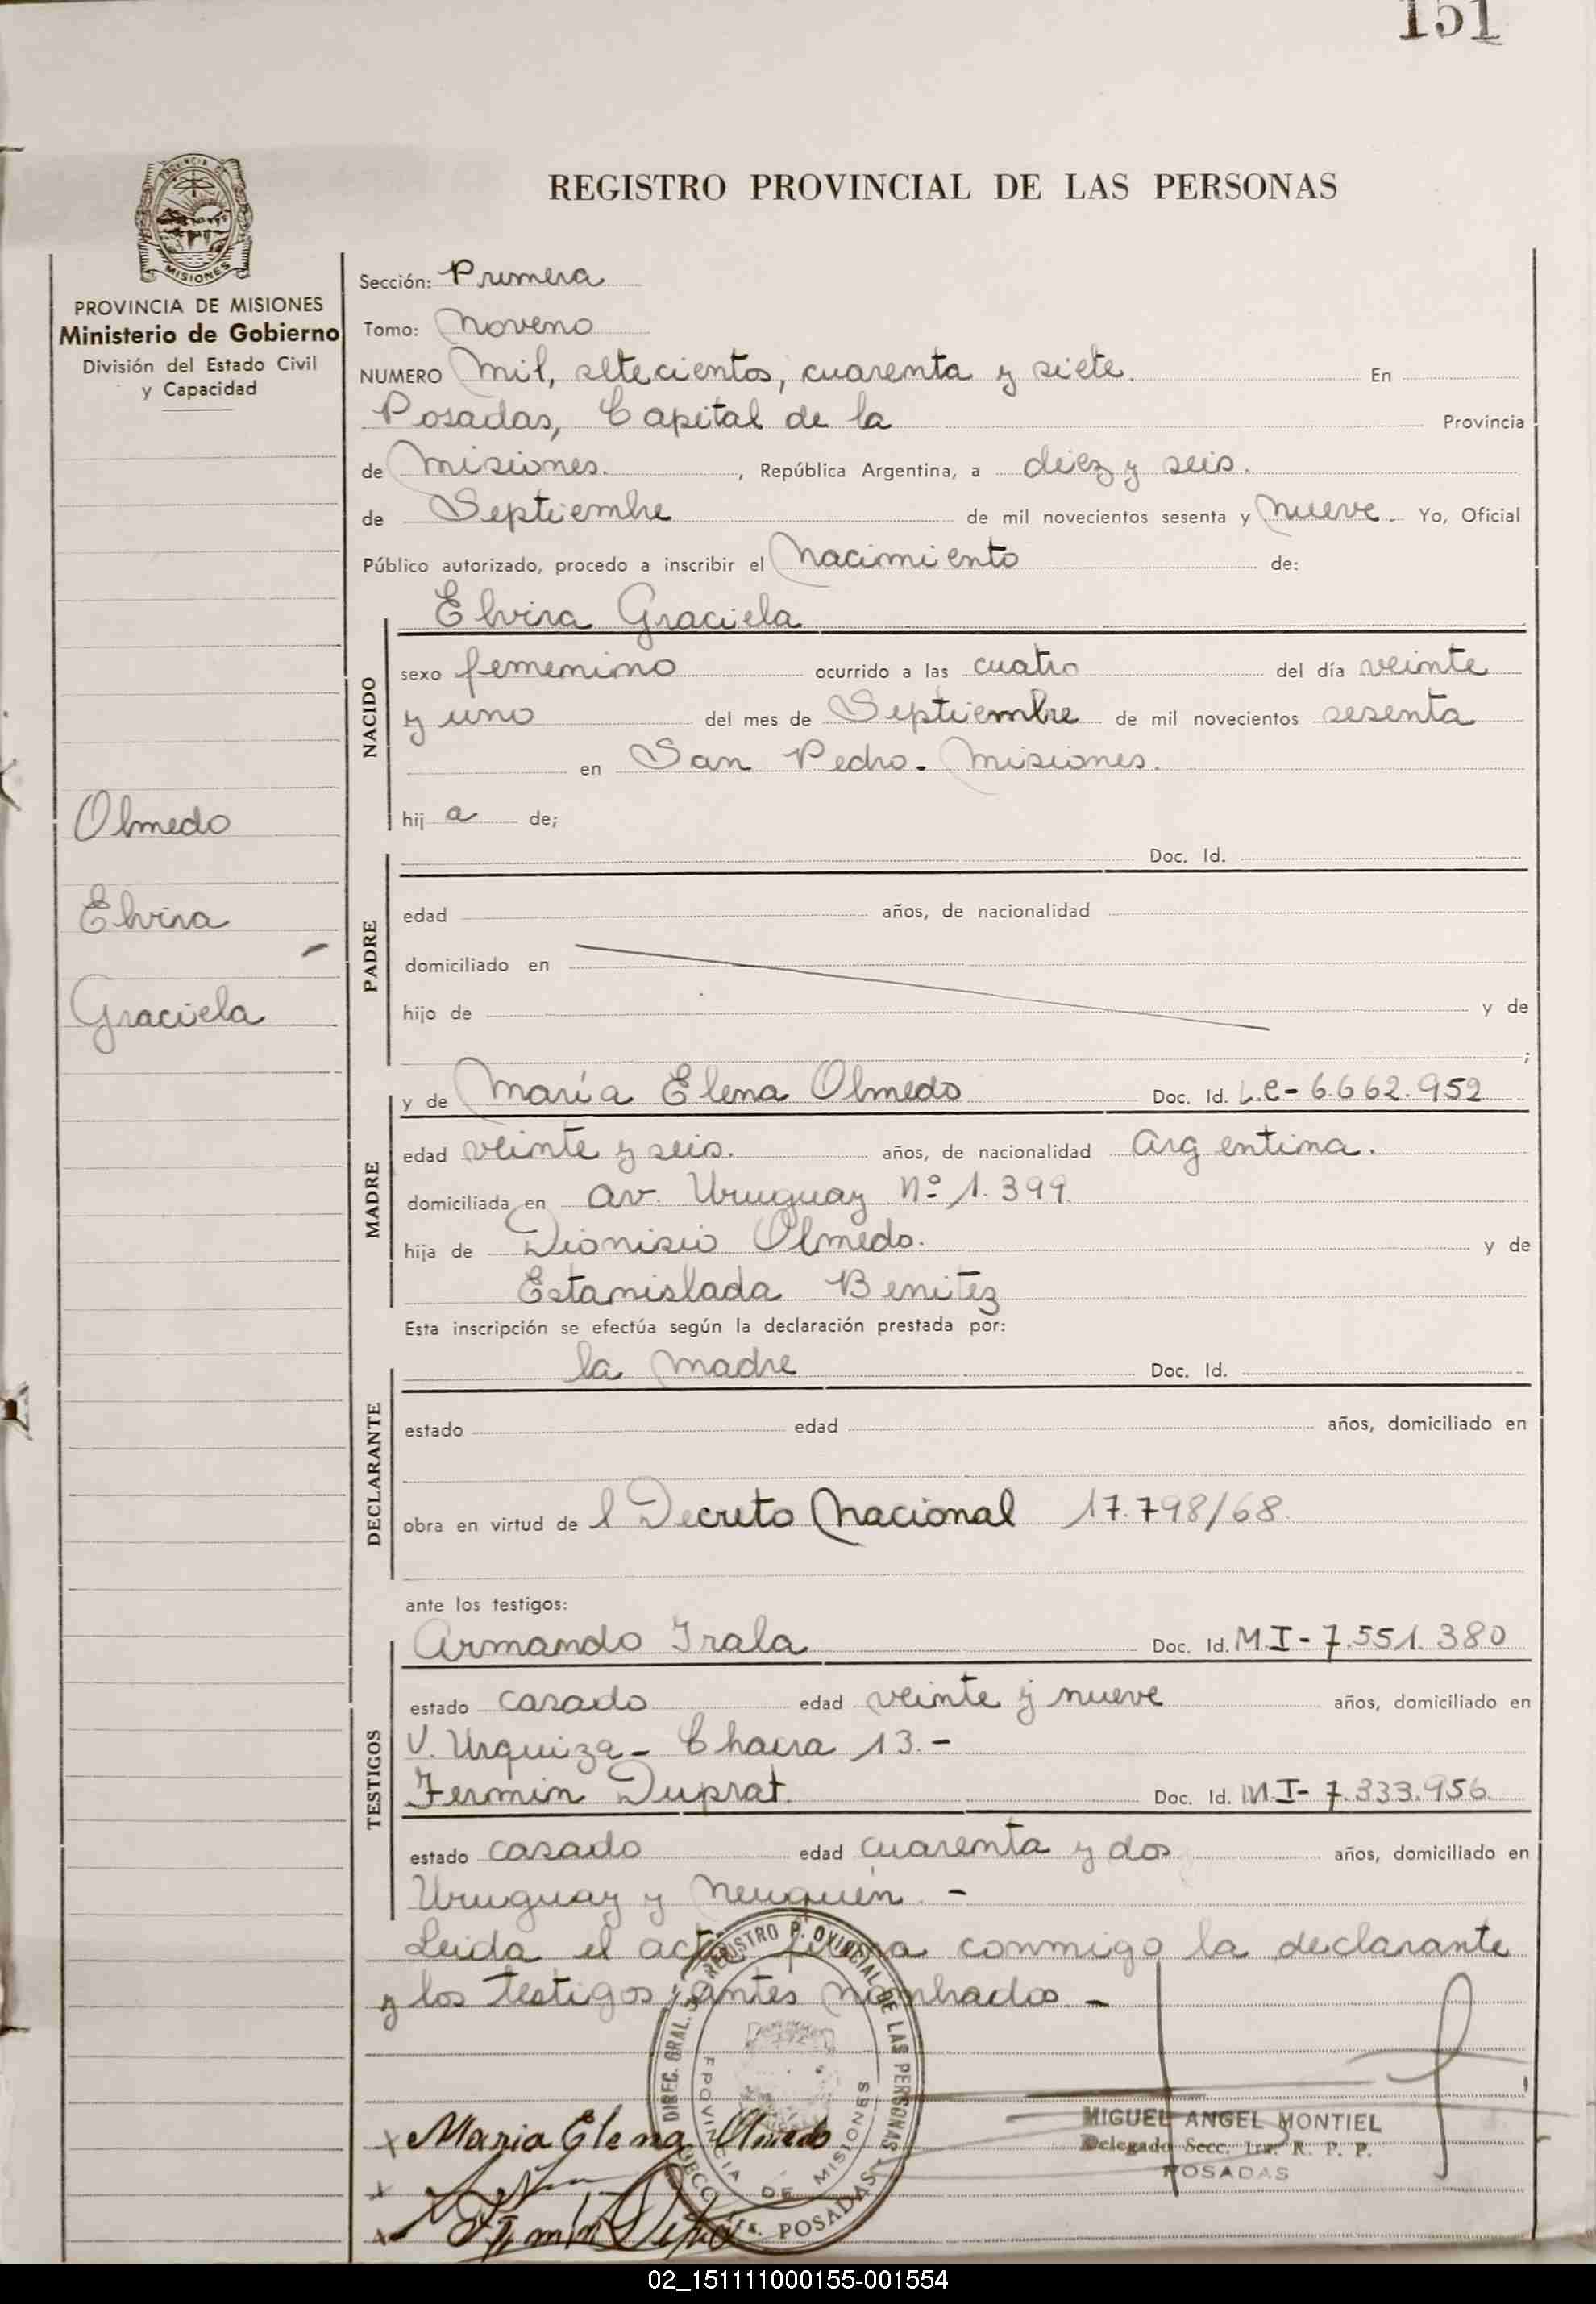 151
REGISTRO PROVINCIAL DE LAS PERSONAS
PROVINCIA DE
MISIONES
PROVINCIA DE MISIONES
Ministerio de Gobierno
División del Estado Civil
y Capacidad
Olmedo
Elvira
Graciela
Sección: Primera
Tomo: Noveno
NUMERO Mil, setecientos, cuarenta y siete. En
Posadas, Capital de la Provincia
de Misiones. , República Argentina, a diez y seis.
de Septiembre de mil novecientos sesenta y nueve. Yo, Oficial
Público autorizado, procedo a inscribir el Nacimiento de:
Elvira Graciela
NACIDO
sexo femenino ocurrido a las cuatro del día veinte
y uno del mes de Septiembre de mil novecientos sesenta
en San Pedro. Misiones.
hij a de;
PADRE
Doc. Id.
edad años, de nacionalidad
domiciliado en
hijo de y de
;
MADRE
y de María Elena Olmedo Doc. Id. L.C- 6.662.952
edad veinte y seis. años, de nacionalidad Argentina.
domiciliada en Av. Uruguay Nº 1.399.
hija de Dionisio Olmedo. y de
Estanislada Benitez
Esta inscripción se efectúa según la declaración prestada por:
DECLARANTE
la madre Doc. Id.
estado edad años, domiciliado en
obra en virtud de l Decreto Nacional 17.798/68.
ante los testigos:
TESTIGOS
Armando Irala Doc. Id. M.I- 7.551.380
estado casado edad veinte y nueve años, domiciliado en
V. Urquiza - Chacra 13.-
Fermin Duprat. Doc. Id. M.I- 7.333.956
estado casado edad cuarenta y dos años, domiciliado en
Uruguay y Neuquén. -
Leida el acta firma conmigo la declarante
y los testigos antes nombrados -
DIREC. GRAL. REGISTRO PROVINCIAL DE LAS PERSONAS
PROVINCIA DE MISIONES
SECC. 1ra. POSADAS
x Maria Elena Olmedo
x
x
MIGUEL ANGEL MONTIEL
Delegado Secc. 1ra. R. P. P.
POSADAS
02_151111000155-001554